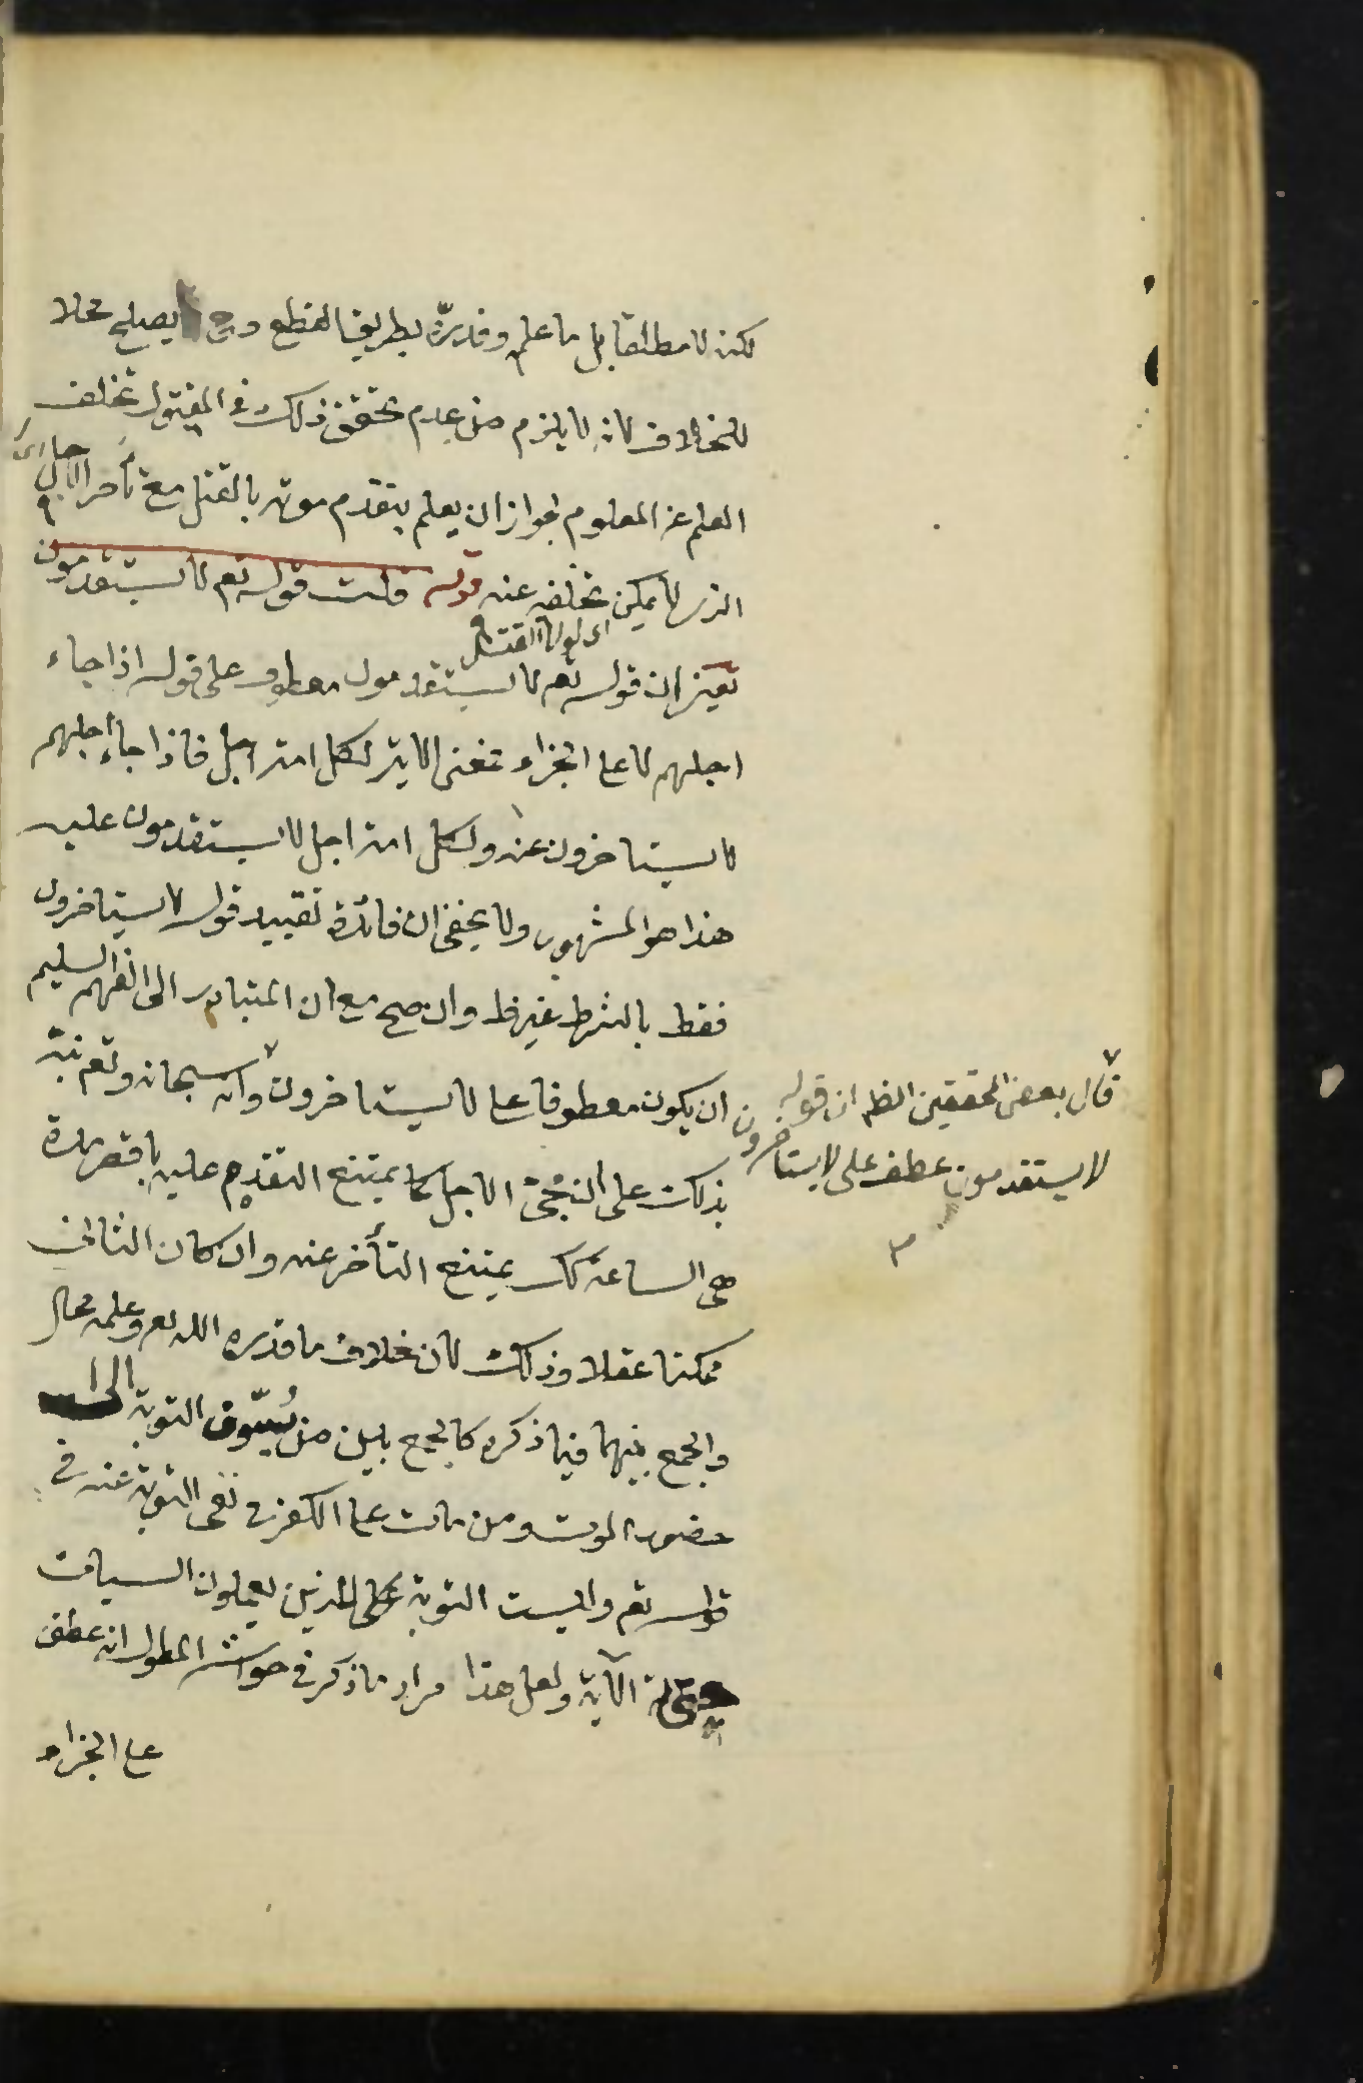 لكن لا مطلقا بل ما علم وقدره بطريق القطع وح يصلح محلا
للخلاف لانه لا يلزم من عدم تحقق ذلك في المقتول تخلف
العلم عن المعلوم لجواز ان يعلم بتقدم موته بالقتل مع تأخر الاجل
الذي لا يمكن تخلفه عنه قوله قلت قوله تع لا يستقدمون
اى لولا القتل
تعين ان قوله تع لا يستقدمون معطوف على قوله اذا جاء
اجلهم لا على الجزاء فمعنى الاية لكل امة اجل فاذا جاء اجلهم
لا يستاخرون عنه ولكل امة اجل لا يستقدمون عليه
هذا هو المشهور ولا يخفى ان فائدة تقييد قوله لا يستاخرون
فقط بالشرط غير ظ وان صح مع ان المتبادر الى الفهم السليم
ان يكون معطوفا على لا يستاخرون وانه سبحانه وتع نبه
بذلك على ان مجئ الاجل كما يمتنع التقديم عليه باقصر مدة
هي الساعة كك يمتنع التأخر عنه وان كان الثاني
ممكنا عقلا وذلك لان خلاف ما قدره الله تع وعلمه محال
والجمع بينهما فيما ذكره كالجمع بين من يُسَوِّف التوبة الى
حضور الموت ومن مات على الكفر في نفى التوبة عنه في
قوله تع وليست التوبة على الذين يعملون السيات
الآية ولعل هذا مراد ما ذكر في حواشى المطول انه عطف
على الجزاء
قال بعض المحققين الظ ان قوله
لا يستقدمون عطف على لا يستاخرون